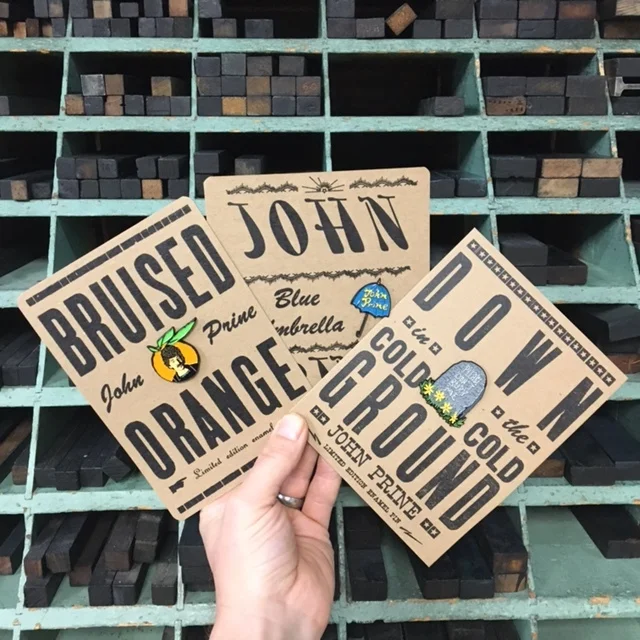 BRUISED
John
Prine
ORANGE
Limited edition enamel
JOHN
Blue
mbrella
John
Prine
DOWN
in
the
COLD COLD
GROUND
JOHN PRINE
LIMITED EDITION ENAMEL PIN